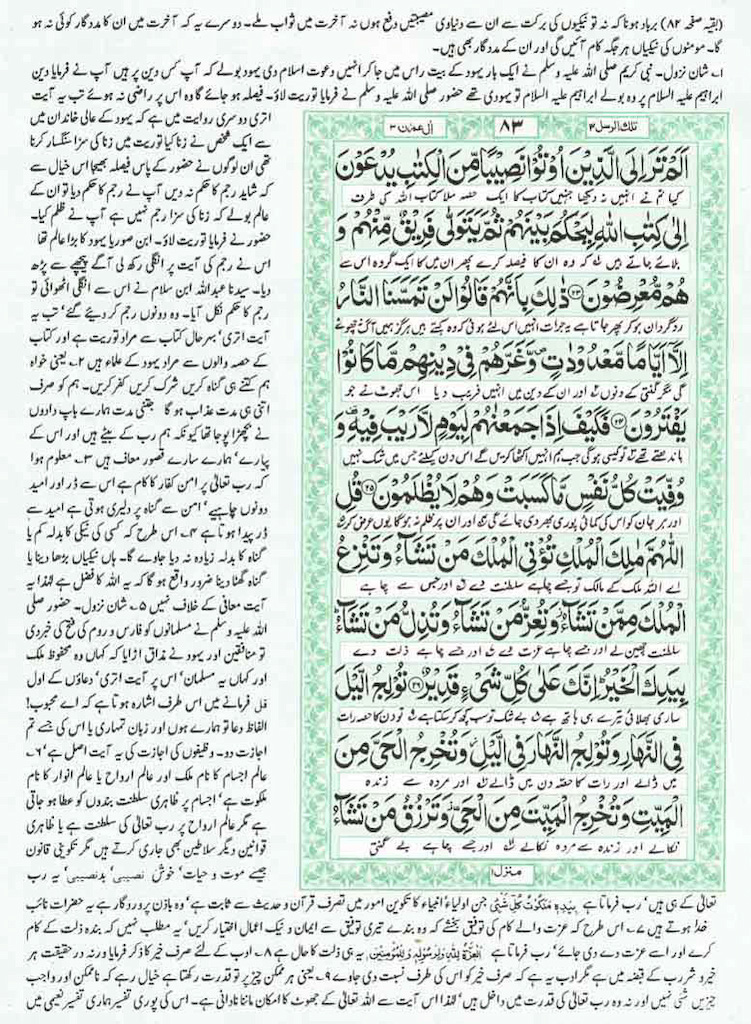 (بقیہ صفحہ ۸۲) برباد ہونا کہ نہ تو نیکیوں کی برکت سے ان سے دنیاوی مصیبتیں دفع ہوں نہ آخرت میں ثواب ملے۔ دوسرے یہ کہ آخرت میں ان کا مددگار کوئی نہ ہو
گا۔ مومنوں کی نیکیاں ہر جگہ کام آئیں گی اور ان کے مددگار بھی ہیں۔
۱۔ شان نزول۔ نبی کریم صلی اللہ علیہ وسلم نے ایک بار یہود کے بیت راس میں جا کر انہیں دعوت اسلام دی یہود بولے کہ آپ کس دین پر ہیں آپ نے فرمایا دین
ابراہیم علیہ السلام پر وہ بولے ابراہیم علیہ السلام تو یہودی تھے حضور صلی اللہ علیہ وسلم نے فرمایا توریت لاؤ۔ فیصلہ ہو جائے گا وہ اس پر راضی نہ ہوئے تب یہ آیت
اتری دوسری روایت میں ہے کہ یہود کے عالی خاندان میں
سے ایک شخص نے زنا کیا توریت میں زنا کی سزا سنگسار کرنا
تھی ان لوگوں نے حضور کے پاس فیصلہ بھیجا اس خیال سے
کہ شاید رجم کا حکم نہ دیں آپ نے رجم کا حکم دیا تو ان کے
عالم بولے کہ زنا کی سزا رجم نہیں ہے آپ نے ظلم کیا۔
حضور نے فرمایا توریت لاؤ۔ ابن صوریا یہود کا بڑا عالم تھا
اس نے رجم کی آیت پر انگلی رکھ لی آگے پیچھے سے پڑھ
دیا۔ سیدنا عبداللہ ابن سلام نے اس سے انگلی اٹھوائی تو
رجم کا حکم نکل آیا۔ وہ دونوں رجم کر دیئے گئے' تب یہ
آیت اتری' بہرحال کتاب سے مراد توریت ہے اور کتاب
کے حصہ والوں سے مراد یہود کے علماء ہیں ۲۔ یعنی خواہ
ہم کتنے ہی گناہ کریں شرک کریں کفر کریں۔ ہم کو صرف
اتنی ہی مدت عذاب ہو گا جتنی مدت ہمارے باپ دادوں
نے بچھڑا پوجا تھا کیونکہ ہم رب کے بیٹے ہیں اور اس کے
پیارے' ہمارے سارے قصور معاف ہیں ۳۔ معلوم ہوا
کہ رب تعالٰی پر امن کفار کا کام ہے اس سے ڈر اور امید
دونوں چاہیے' امن سے گناہ پر دلیری ہوتی ہے امید سے
ڈر پیدا ہوتا ہے ۴۔ اس طرح کہ کسی کی نیکی کا بدلہ کم یا
گناہ کا بدلہ زیادہ نہ دیا جاوے گا۔ ہاں نیکیاں بڑھا دینا یا
گناہ گھٹا دینا ضرور واقع ہو گا کہ یہ اللہ کا فضل ہے لہٰذا یہ
آیت معافی کے خلاف نہیں ۵۔ شان نزول۔ حضور صلی
اللہ علیہ وسلم نے مسلمانوں کو فارس و روم کی فتح کی خبر دی
تو منافقین اور یہود نے مذاق اڑایا کہ کہاں وہ محفوظ ملک
اور کہاں یہ مسلمان' اس پر یہ آیت اتری' دعاؤں کے اول
قل فرمانے میں اس طرف اشارہ ہوتا ہے کہ اے محبوب!
الفاظ دعا تو ہمارے ہوں اور زبان تمہاری یا اس کی جسے تم
اجازت دو۔ وظیفوں کی اجازت کی یہ آیت اصل ہے' ۶۔
عالم اجسام کا نام ملک اور عالم ارواح یا عالم انوار کا نام
ملکوت ہے' اجسام پر ظاہری سلطنت بندوں کو عطا ہو جاتی
ہے مگر عالم ارواح پر رب تعالٰی کی سلطنت ہے یا ظاہری
قوانین دیگر سلاطین بھی جاری کرتے ہیں مگر تکوینی قانون
جیسے موت و حیات' خوش نصیبی' بدنصیبی' یہ رب
تلک الرسل ۳ ۸۳ اٰل عمرٰن ۳
اَلَمْ تَرَ اِلَى الَّذِیْنَ اُوْتُوْا نَصِیْبًا مِّنَ الْكِتٰبِ یُدْعَوْنَ
کیا تم نے انہیں نہ دیکھا جنہیں کتاب کا ایک حصہ ملا کتاب اللہ کی طرف
اِلٰى كِتٰبِ اللّٰهِ لِیَحْكُمَ بَیْنَهُمْ ثُمَّ یَتَوَلّٰى فَرِیْقٌ مِّنْهُمْ وَ
بلائے جاتے ہیں ۱ کہ وہ ان کا فیصلہ کرے پھر ان میں کا ایک گروہ اس سے
هُمْ مُّعْرِضُوْنَ ۝۲۳ ذٰلِكَ بِاَنَّهُمْ قَالُوْا لَنْ تَمَسَّنَا النَّارُ
روگرداں ہو کر پھر جاتا ہے یہ جرات انہیں اس لئے ہوئی کہ وہ کہتے ہیں ہرگز ہمیں آگ نہ چھوئے
اِلَّاۤ اَیَّامًا مَّعْدُوْدٰتٍ وَّغَرَّهُمْ فِیْ دِیْنِهِمْ مَّا كَانُوْا
گی مگر گنتی کے دنوں ۲ اور ان کے دین میں انہیں فریب دیا اس جھوٹ نے جو
یَفْتَرُوْنَ ۝۲۴ فَكَیْفَ اِذَا جَمَعْنٰهُمْ لِیَوْمٍ لَّا رَیْبَ فِیْهِ وَ
باندھتے تھے ۳ تو کیسی ہوگی جب ہم انہیں اکٹھا کریں گے اس دن کیلئے جس میں شک نہیں
وُفِّیَتْ كُلُّ نَفْسٍ مَّا كَسَبَتْ وَهُمْ لَا یُظْلَمُوْنَ ۝۲۵ قُلِ
اور ہر جان کو اس کی کمائی پوری بھر دی جائے گی ۴ اور ان پر ظلم نہ ہو گا یوں عرض کر ۵
اللّٰهُمَّ مٰلِكَ الْمُلْكِ تُؤْتِی الْمُلْكَ مَنْ تَشَآءُ وَتَنْزِعُ
اے اللہ ملک کے مالک تو جسے چاہے سلطنت دے ۶ اور جس سے چاہے
الْمُلْكَ مِمَّنْ تَشَآءُ وَتُعِزُّ مَنْ تَشَآءُ وَتُذِلُّ مَنْ تَشَآءُ
سلطنت چھین لے اور جسے چاہے عزت دے ۷ اور جسے چاہے ذلت دے
بِیَدِكَ الْخَیْرُ اِنَّكَ عَلٰى كُلِّ شَیْءٍ قَدِیْرٌ ۝۲۶ تُوْلِجُ الَّیْلَ
ساری بھلائی تیرے ہی ہاتھ ہے ۸ بے شک تو سب کچھ کر سکتا ہے ۹ تو دن کا حصہ رات
فِی النَّهَارِ وَتُوْلِجُ النَّهَارَ فِی الَّیْلِ وَتُخْرِجُ الْحَیَّ مِنَ
میں ڈالے اور رات کا حصہ دن میں ڈالے ۱۰ اور مردہ سے زندہ
الْمَیِّتِ وَتُخْرِجُ الْمَیِّتَ مِنَ الْحَیِّ وَتَرْزُقُ مَنْ تَشَآءُ
نکالے اور زندہ سے مردہ نکالے ۱۱ اور جسے چاہے بے گنتی
منزل ۱
تعالٰی کے ہی ہیں' رب فرماتا ہے بِیَدِهٖ مَلَكُوْتُ كُلِّ شَیْءٍ جن اولیاء' انبیاء کا تکوین امور میں تصرف قرآن و حدیث سے ثابت ہے' وہ باذن پروردگار ہے یہ حضرات نائب
خدا ہوتے ہیں ۷۔ اس طرح کہ عزت والے کام کی توفیق بخشے کہ وہ بندے تیری توفیق سے ایمان و نیک اعمال اختیار کریں' یہ مطلب نہیں کہ بندہ ذلت کے کام
کرے اور اسے عزت دے دی جائے' رب فرماتا ہے اَلْعِزَّةُ لِلّٰهِ وَلِرَسُوْلِهٖ وَلِلْمُؤْمِنِیْنَ یہ ہی ذلت کا حال ہے ۸۔ ادب کے لئے صرف خیر کا ذکر فرمایا ورنہ در حقیقت ہر
خیر و شر رب کے قبضہ میں ہے مگر ادب یہ ہے کہ صرف خیر کو اس کی طرف نسبت دی جاوے ۹۔ یعنی ہر ممکن چیز پر تو قدرت رکھتا ہے خیال رہے کہ ناممکن اور واجب
چیزیں شئی نہیں اور نہ وہ رب تعالٰی کی قدرت میں داخل ہیں' لہٰذا اس آیت سے اللہ تعالٰی کے جھوٹ کا امکان ماننا نادانی ہے۔ اس کی پوری تفسیر ہماری تفسیر نعیمی میں